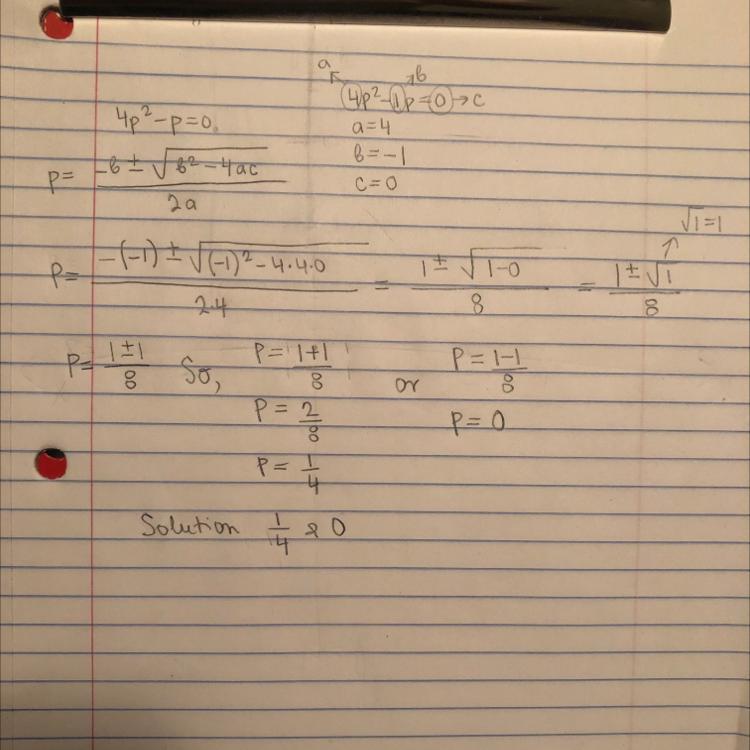 a b
4p²-1p=0→c
4p²-p=0
a=4
b=-1
c=0
p= -b±√b²-4ac / 2a
√1=1
p= -(-1)±√(-1)²-4·4·0 / 2·4 = 1±√1-0 / 8 = 1±√1 / 8
p= 1±1 / 8 So, p= 1+1 / 8 or p= 1-1 / 8
p= 2/8 p=0
p= 1/4
Solution 1/4 & 0